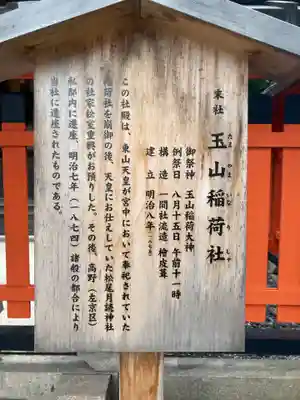 末社
玉山稲荷社
たまやまいなりしゃ
御祭神 玉山稲荷大神
例祭日 八月十五日 午前十一時
構造 一間社流造 檜皮葺
建立 明治八年(一八七五)
この社殿は、東山天皇が宮中において奉祀されていた
稲荷社を崩御の後、天皇にお仕えしていた松尾月読神社
の社家松室重興がお預りした。その後、高野(左京区)
私邸内に遷座、明治七年(一八七四)諸般の都合により
当社に遷座されたものである。